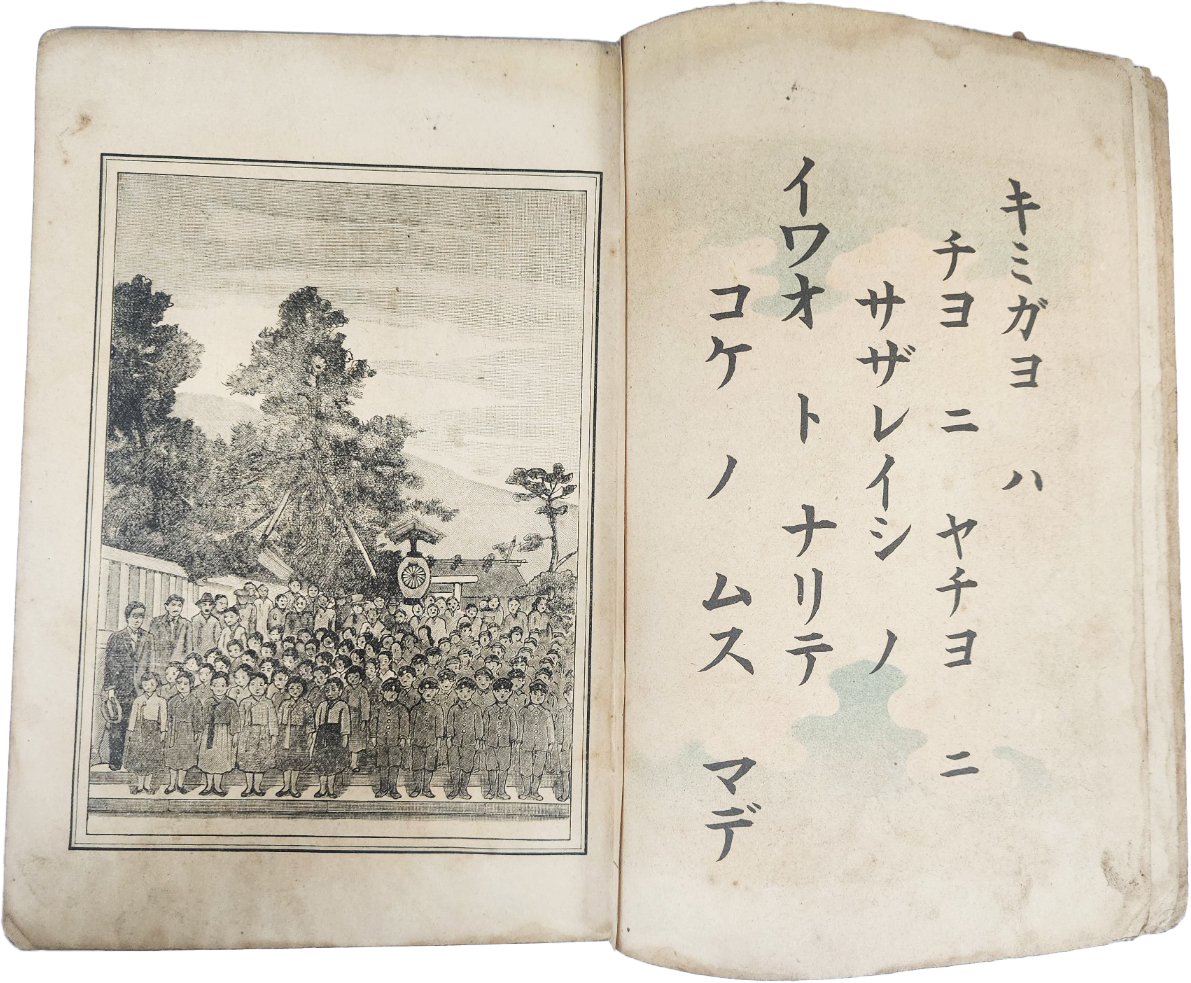 キミガヨ ハ
チヨ ニ ヤチヨ ニ
サザレイシ ノ
イワオ ト ナリテ
コケ ノ ムス マデ